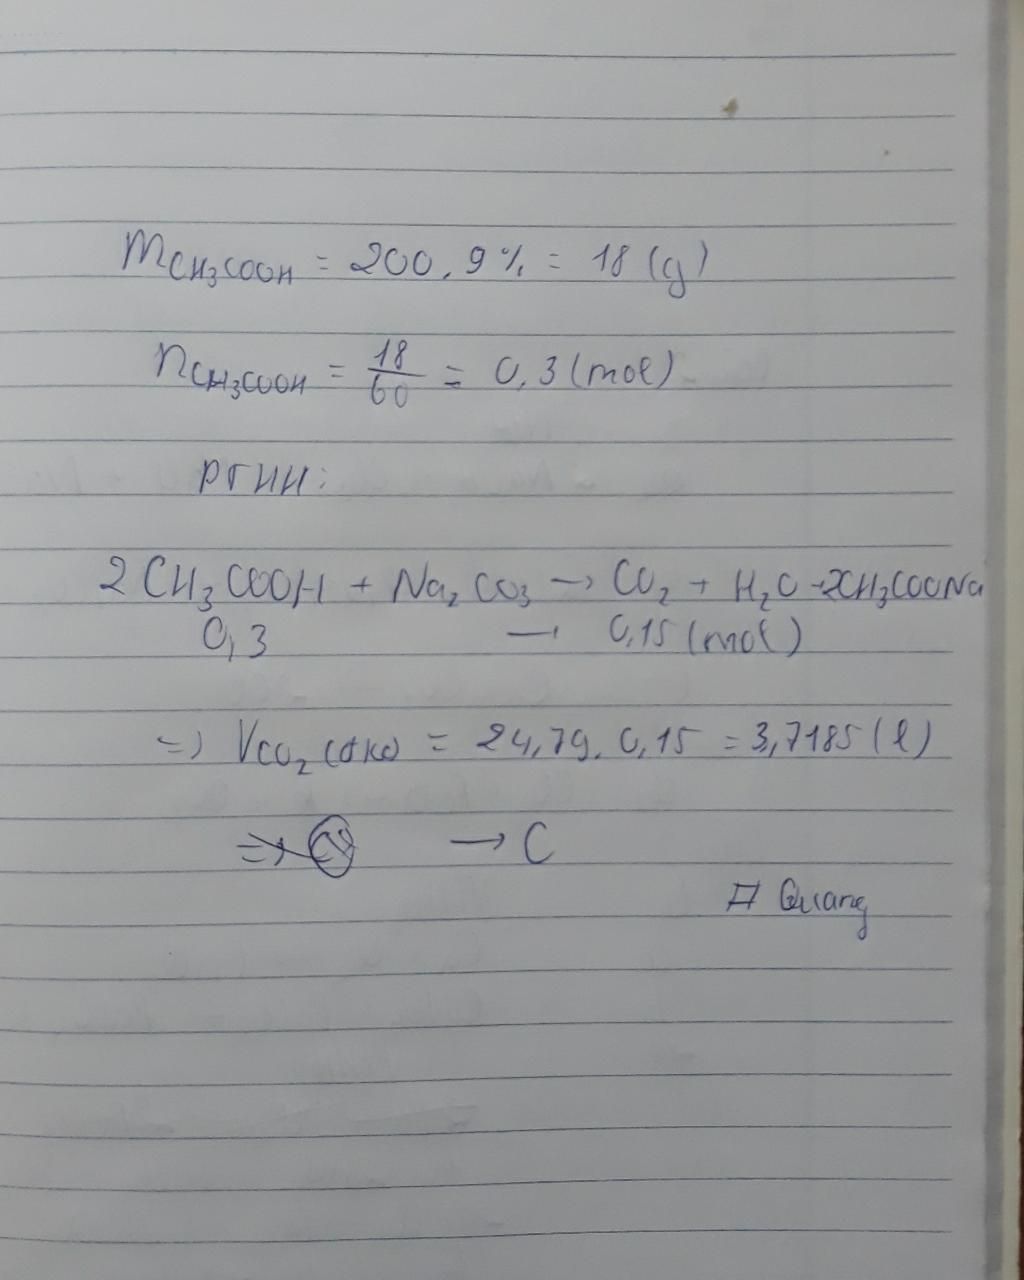 mCH₃COOH = 200 . 9% = 18 (g)
nCH₃COOH = 18/60 = 0,3 (mol)
PTHH:
2 CH₃COOH + Na₂CO₃ → CO₂ + H₂O + 2CH₃COONa
0,3 → 0,15 (mol)
=> VCO₂ (đkc) = 24,79 . 0,15 = 3,7185 (l)
→ C
# Quang